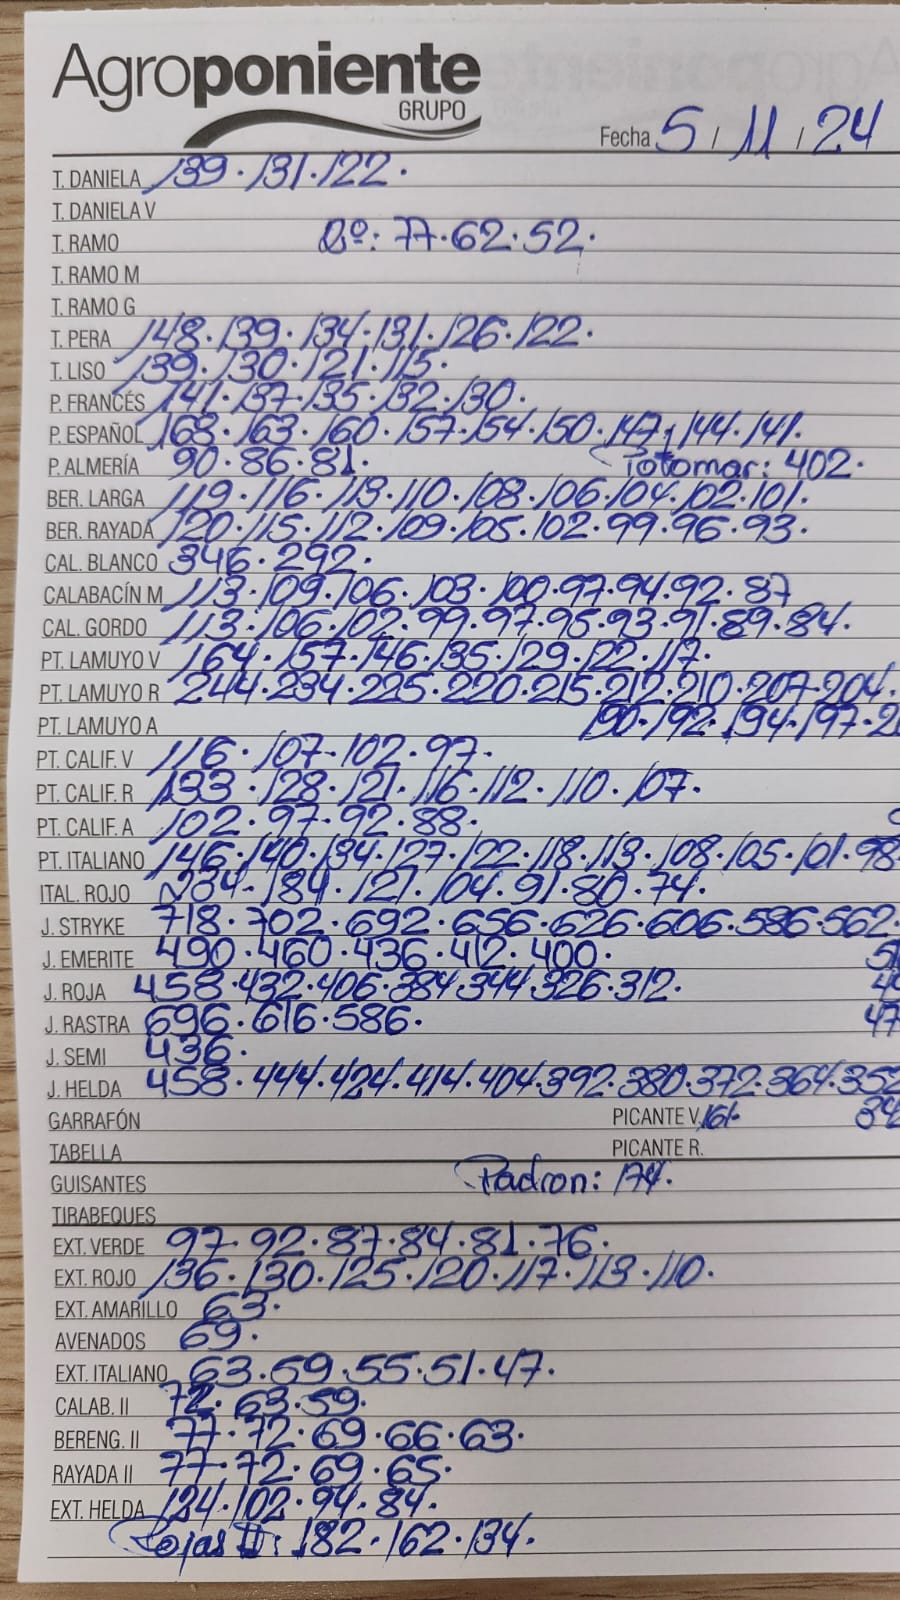 Agroponiente
GRUPO
Fecha 5 / 11 / 24
T. DANIELA 139 · 131 · 122 ·
T. DANIELA V
T. RAMO 2º: 77 · 62 · 52 ·
T. RAMO M
T. RAMO G
T. PERA 148 · 139 · 134 · 131 · 126 · 122 ·
T. LISO 139 · 130 · 121 · 115 ·
P. FRANCÉS 141 · 137 · 135 · 132 · 130 ·
P. ESPAÑOL 168 · 163 · 160 · 157 · 154 · 150 · 147 · 144 · 141 ·
P. ALMERÍA 90 · 86 · 81 · Totomar: 402 ·
BER. LARGA 119 · 116 · 113 · 110 · 108 · 106 · 104 · 102 · 101 ·
BER. RAYADA 120 · 115 · 112 · 109 · 105 · 102 · 99 · 96 · 93 ·
CAL. BLANCO 346 · 292 ·
CALABACÍN M 113 · 109 · 106 · 103 · 100 · 97 · 94 · 92 · 87
CAL. GORDO 113 · 106 · 102 · 99 · 97 · 95 · 93 · 91 · 89 · 84 ·
PT. LAMUYO V 164 · 157 · 146 · 135 · 129 · 122 · 117 ·
PT. LAMUYO R 244 · 234 · 225 · 220 · 215 · 212 · 210 · 207 · 204 ·
PT. LAMUYO A 190 · 192 · 194 · 197 ·
PT. CALIF. V 116 · 107 · 102 · 97 ·
PT. CALIF. R 133 · 128 · 121 · 116 · 112 · 110 · 107 ·
PT. CALIF. A 102 · 97 · 92 · 88 ·
PT. ITALIANO 146 · 140 · 134 · 127 · 122 · 118 · 113 · 108 · 105 · 101 · 98
ITAL. ROJO 184 · 121 · 104 · 91 · 80 · 74 ·
J. STRYKE 718 · 702 · 692 · 656 · 626 · 606 · 586 · 562 ·
J. EMERITE 490 · 460 · 436 · 412 · 400 ·
J. ROJA 458 · 432 · 406 · 384 · 344 · 326 · 312 ·
J. RASTRA 696 · 616 · 586 · 47
J. SEMI 436 ·
J. HELDA 458 · 444 · 424 · 414 · 404 · 392 · 380 · 372 · 364 · 352
GARRAFÓN PICANTE V. 161 ·
TABELLA PICANTE R.
GUISANTES Padron: 174 ·
TIRABEQUES
EXT. VERDE 97 · 92 · 87 · 84 · 81 · 76 ·
EXT. ROJO 136 · 130 · 125 · 120 · 117 · 113 · 110 ·
EXT. AMARILLO 63 ·
AVENADOS 69 ·
EXT. ITALIANO 63 · 59 · 55 · 51 · 47 ·
CALAB. II 72 · 63 · 59 ·
BERENG. II 77 · 72 · 69 · 66 · 63 ·
RAYADA II 77 · 72 · 69 · 65 ·
EXT. HELDA 124 · 102 · 94 · 84 ·
Rojas II: 182 · 162 · 134 ·